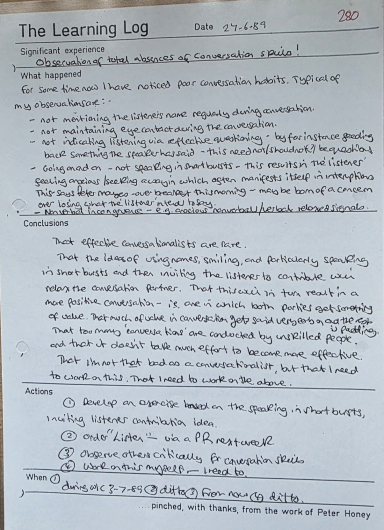 280
The Learning Log Date 27-6-89
Significant experience
Observation of total absences of conversation skills!
What happened
For some time now I have noticed poor conversation habits. Typical of
my observations are:-
- not mentioning the listener's name regularly during conversation.
- not maintaining eye contact during the conversation.
- not indicating listening via reflective questioning - by for instance feeding
back something the speaker has said - this need not (shouldn't) be questions
- Going on and on - not speaking in short bursts - this results in the listener
seeking a way in which often manifests itself in interruptions
This says Peter over breakfast this morning - may be born of a concern
over losing what the listener intends to say.
- Nonverbal incongruence - e.g. nonverbal/verbal related signals.
Conclusions
That effective conversationalists are rare.
That the ideas of using names, smiling, and particularly speaking
in short bursts and then inviting the listener to contribute will
relax the conversation partner. That this will in turn result in a
more positive conversation - i.e. one in which both parties get something
of value. That much of value in conversation gets said very early on and the rest
is padding.
That too many 'conversations' are conducted by unskilled people
and that it doesn't take much effort to become more effective.
That I'm not that bad as a conversationalist, but that I need
to work on this. That I need to work on the above.
Actions
① Develop an exercise based on the speaking in short bursts,
inviting listener contribution idea.
② order "Listen" - via a PR
③ Observe others critically for conversation skills
④ Work on this myself - I need to.
When ① during w/c 3-7-89 ② ditto ③ From now ④ ditto.
pinched, with thanks, from the work of Peter Honey